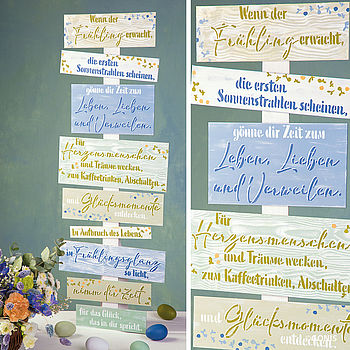 Wenn der
Frühling erwacht,
die ersten
Sonnenstrahlen scheinen,
gönne dir Zeit zum
Leben, Lieben
und Verweilen.
Für
Herzensmenschen
und Träume wecken,
zum Kaffeetrinken, Abschalten
und Glücksmomente
entdecken.
Im Aufbruch des Lebens,
im Frühlingsglanz
so licht,
nimm dir Zeit
für das Glück,
das in dir spricht.
Wenn der
Frühling erwacht,
die ersten
Sonnenstrahlen scheinen,
gönne dir Zeit zum
Leben, Lieben
und Verweilen.
Für
Herzensmenschen
und Träume wecken,
zum Kaffeetrinken, Abschalten
und Glücksmomente
entdecken.